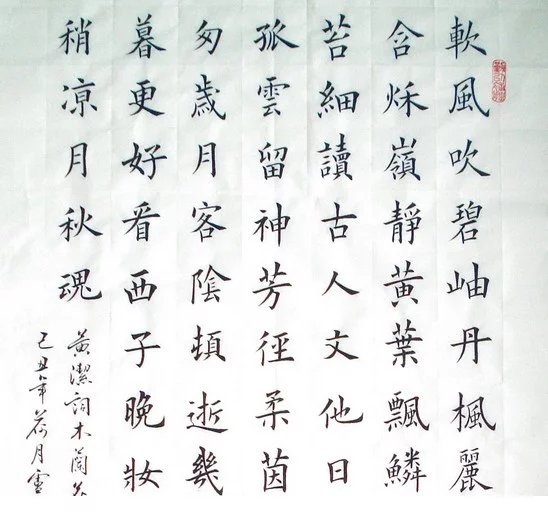 軟風吹碧岫丹楓麗
含秌嶺靜黃葉飄鱗
苔細讀古人文他日
孤雲留神芳徑柔茵
匆歲月客陰頓逝幾
暮更好看西子晚妝
稍凉月秋魂
黃潔詞木蘭
己丑年荷月雪